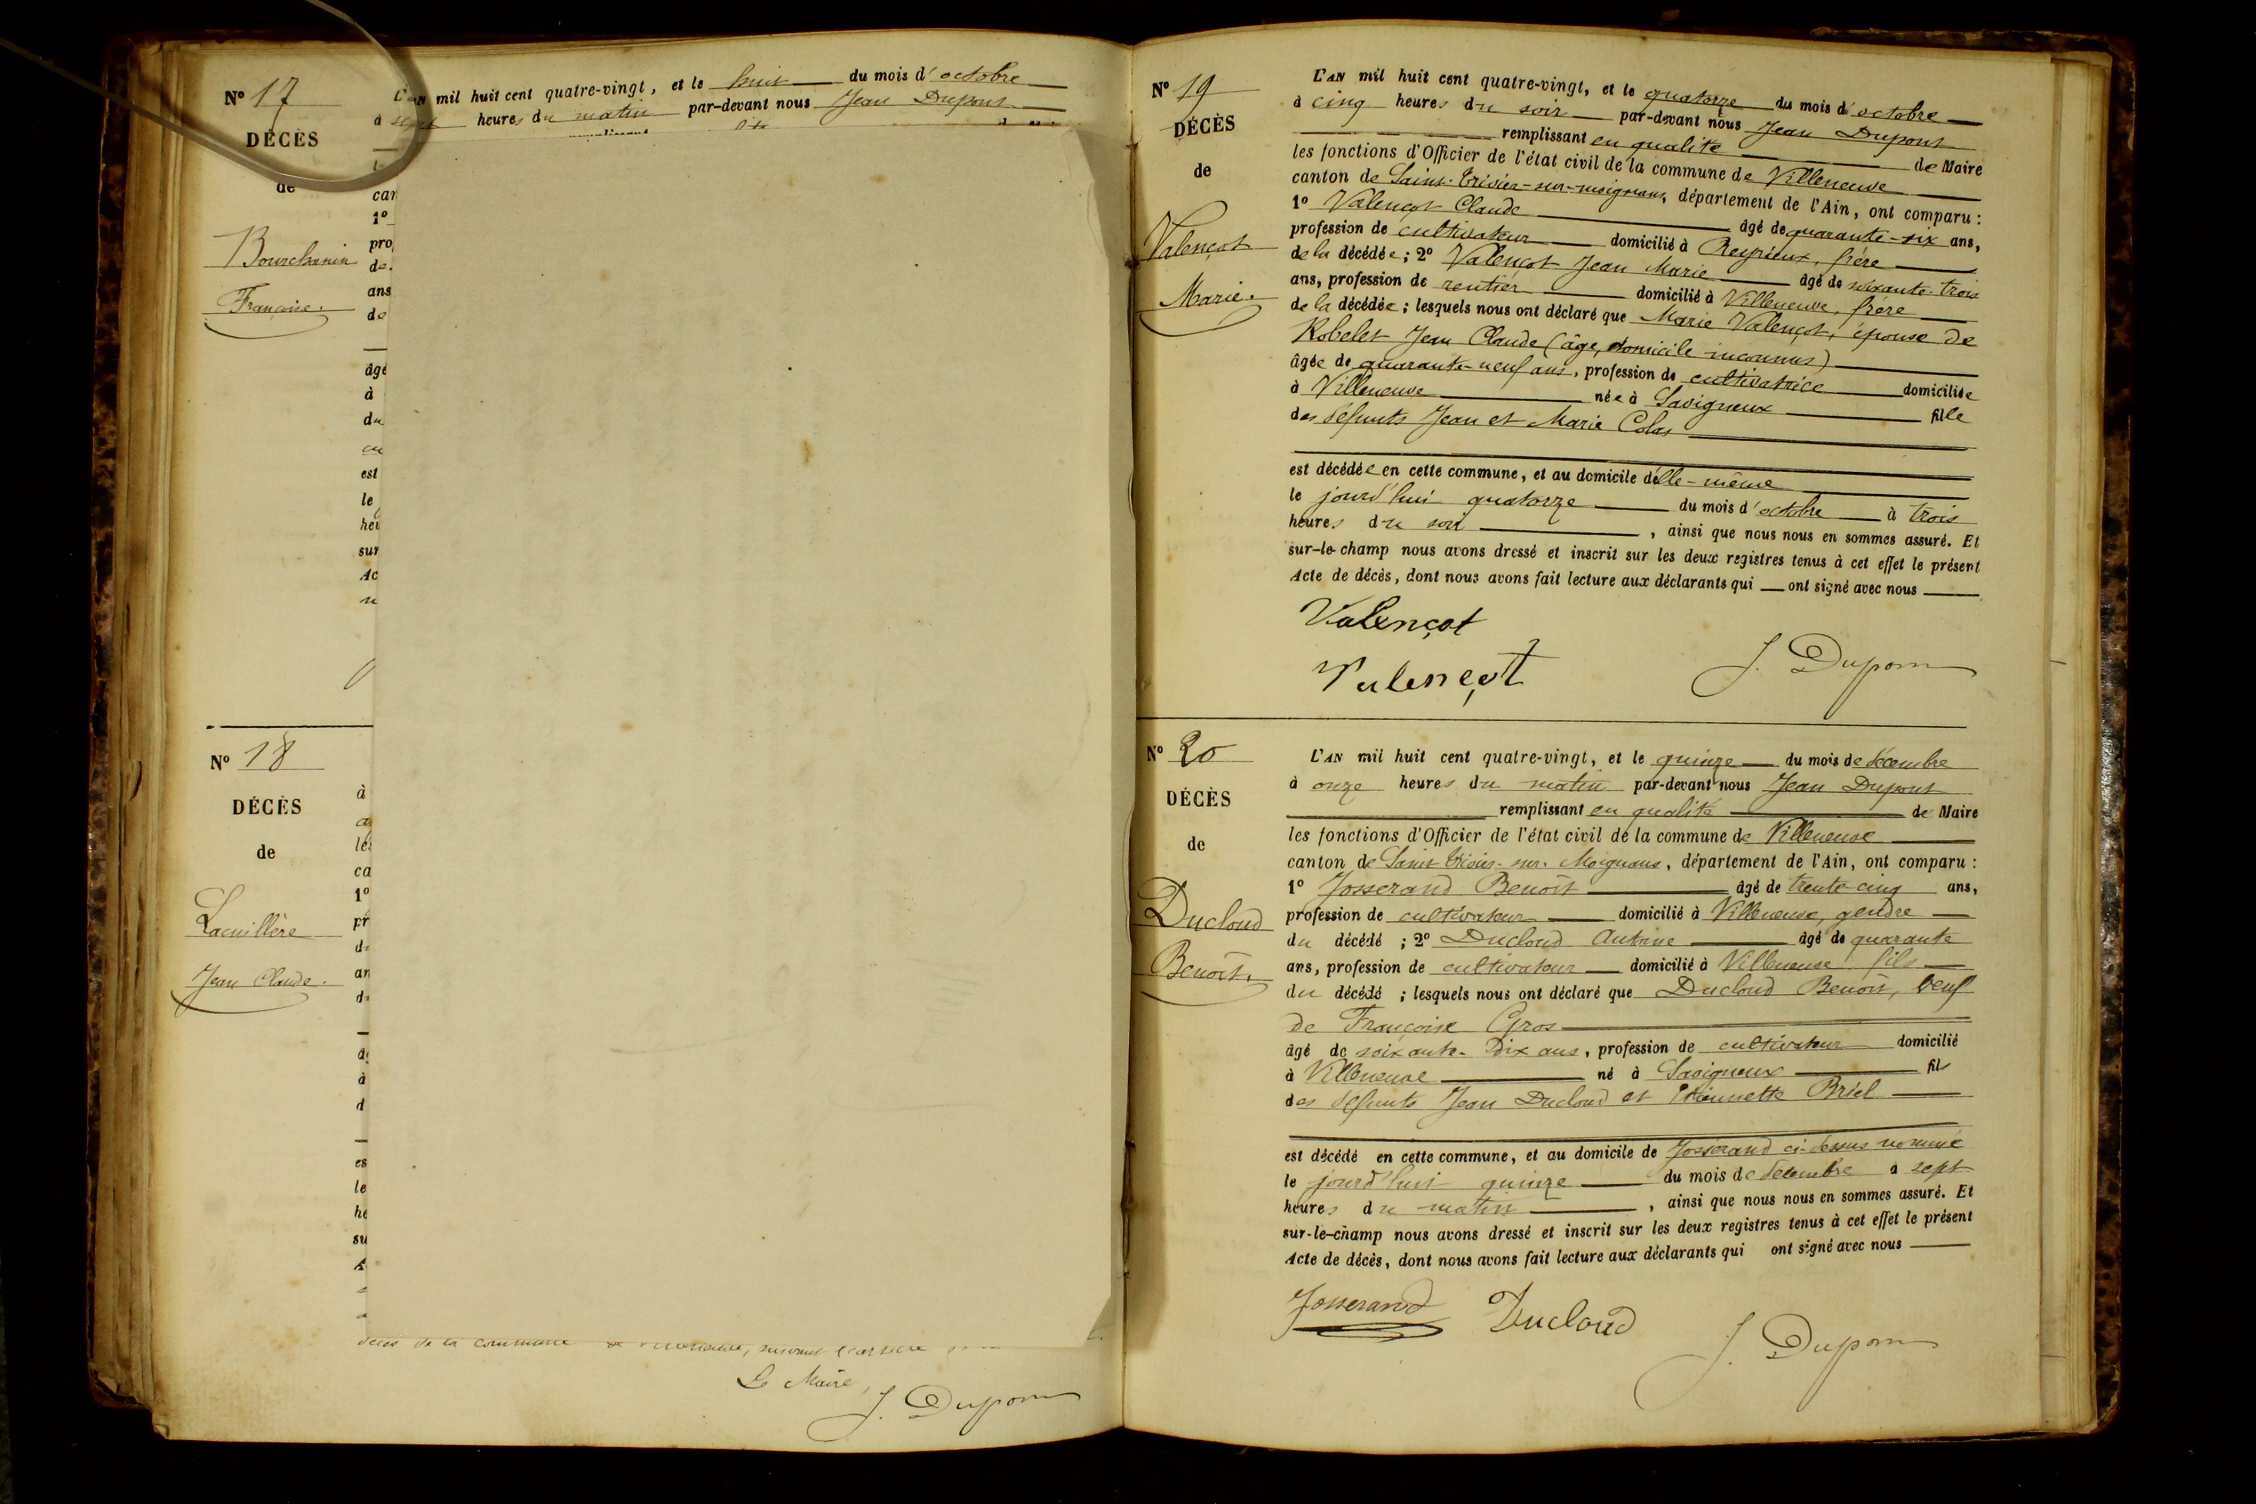 N° 17
DÉCÈS
de
Bourchanin
Françoise.
L'AN mil huit cent quatre-vingt, et le huit du mois d'octobre
à sept heures du matin par-devant nous Jean Dupont
car
1°
pro
de
ans
de
âgé
à
du
est
le
heu
sur
Ac
N° 18
DÉCÈS
de
Lacuillère
Jean Claude.
à
les
ca
1°
pr
an
à
d
es
le
he
su
décès de la commune
Le Maire,
J. Dupont
N° 19
DÉCÈS
de
Valençot
Marie.
L'AN mil huit cent quatre-vingt, et le quatorze du mois d'octobre
à cinq heures du soir par-devant nous Jean Dupont
remplissant en qualité de Maire
les fonctions d'Officier de l'état civil de la commune de Villeneuve
canton de Saint-Trivier-sur-moignans, département de l'Ain, ont comparu :
1° Valençot Claude âgé de quarante-six ans,
profession de cultivateur domicilié à Reyrieux, frère
de la décédée ; 2° Valençot Jean Marie âgé de soixante-trois
ans, profession de rentier domicilié à Villeneuve, frère
de la décédée ; lesquels nous ont déclaré que Marie Valençot, épouse de
Robelet Jean Claude (âge, domicile inconnus)
âgée de quarante-neuf ans, profession de cultivatrice domiciliée
à Villeneuve née à Savigneux fille
des défunts Jean et Marie Colas
est décédée en cette commune, et au domicile d'elle-même
le jourd'hui quatorze du mois d'octobre à trois
heures du soir , ainsi que nous nous en sommes assuré. Et
sur-le-champ nous avons dressé et inscrit sur les deux registres tenus à cet effet le présent
Acte de décès, dont nous avons fait lecture aux déclarants qui ont signé avec nous
Valençot
Valençot
J. Dupont
N° 20
DÉCÈS
de
Ducloud
Benoît.
L'AN mil huit cent quatre-vingt, et le quinze du mois de décembre
à onze heures du matin par-devant nous Jean Dupont
remplissant en qualité de Maire
les fonctions d'Officier de l'état civil de la commune de Villeneuve
canton de Saint Trivier-sur-Moignans, département de l'Ain, ont comparu :
1° Josserand Benoît âgé de trente-cinq ans,
profession de cultivateur domicilié à Villeneuve, gendre
du décédé ; 2° Ducloud Antoine âgé de quarante
ans, profession de cultivateur domicilié à Villeneuve fils
du décédé ; lesquels nous ont déclaré que Ducloud Benoît, veuf
de Françoise Gros
âgé de soixante-dix ans, profession de cultivateur domicilié
à Villeneuve né à Savigneux fils
des défunts Jean Ducloud et Etiennette Briel
est décédé en cette commune, et au domicile de Josserand ci-dessus nommé
le jourd'hui quinze du mois de décembre à sept
heures du matin , ainsi que nous nous en sommes assuré. Et
sur-le-champ nous avons dressé et inscrit sur les deux registres tenus à cet effet le présent
Acte de décès, dont nous avons fait lecture aux déclarants qui ont signé avec nous
Josserand Ducloud
J. Dupont